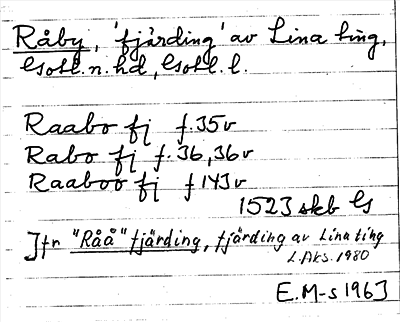 Råby, 'fjärding' av Lina ting,
Gotl. n. hd, Gotl. l.
Raabo fj f. 35v
Rabo fj f. 36, 36v
Raaboo fj f 143v
1523 skb G
Jfr "Råå" fjärding, fjärding av Lina ting
L.Aks. 1980
E. M-s 1963